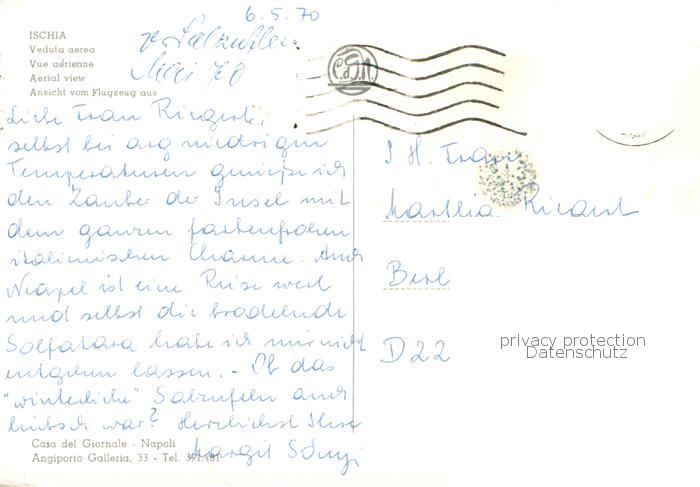 6.5.70
ISCHIA
Veduta aerea
Vue aérienne
Aerial view
Ansicht vom Flugzeug aus
Mai 70
Liebe Frau
selbst bei arg niedrigen
Temperaturen genieße ich
den Zauber der Insel mit
dem ganzen farbenfrohen
italienischen Charme. Auch
Neapel ist eine Reise wert
und selbst die brodelnde
Solfatara habe ich mir nicht
entgehen lassen. - Ob das
"winterliche" Salzuflen auch
hübsch war? Herzlichst Ihre
Margit
Casa del Giornale - Napoli
Angiporto Galleria, 33 - Tel.
Frau
D 22
privacy protection
Datenschutz